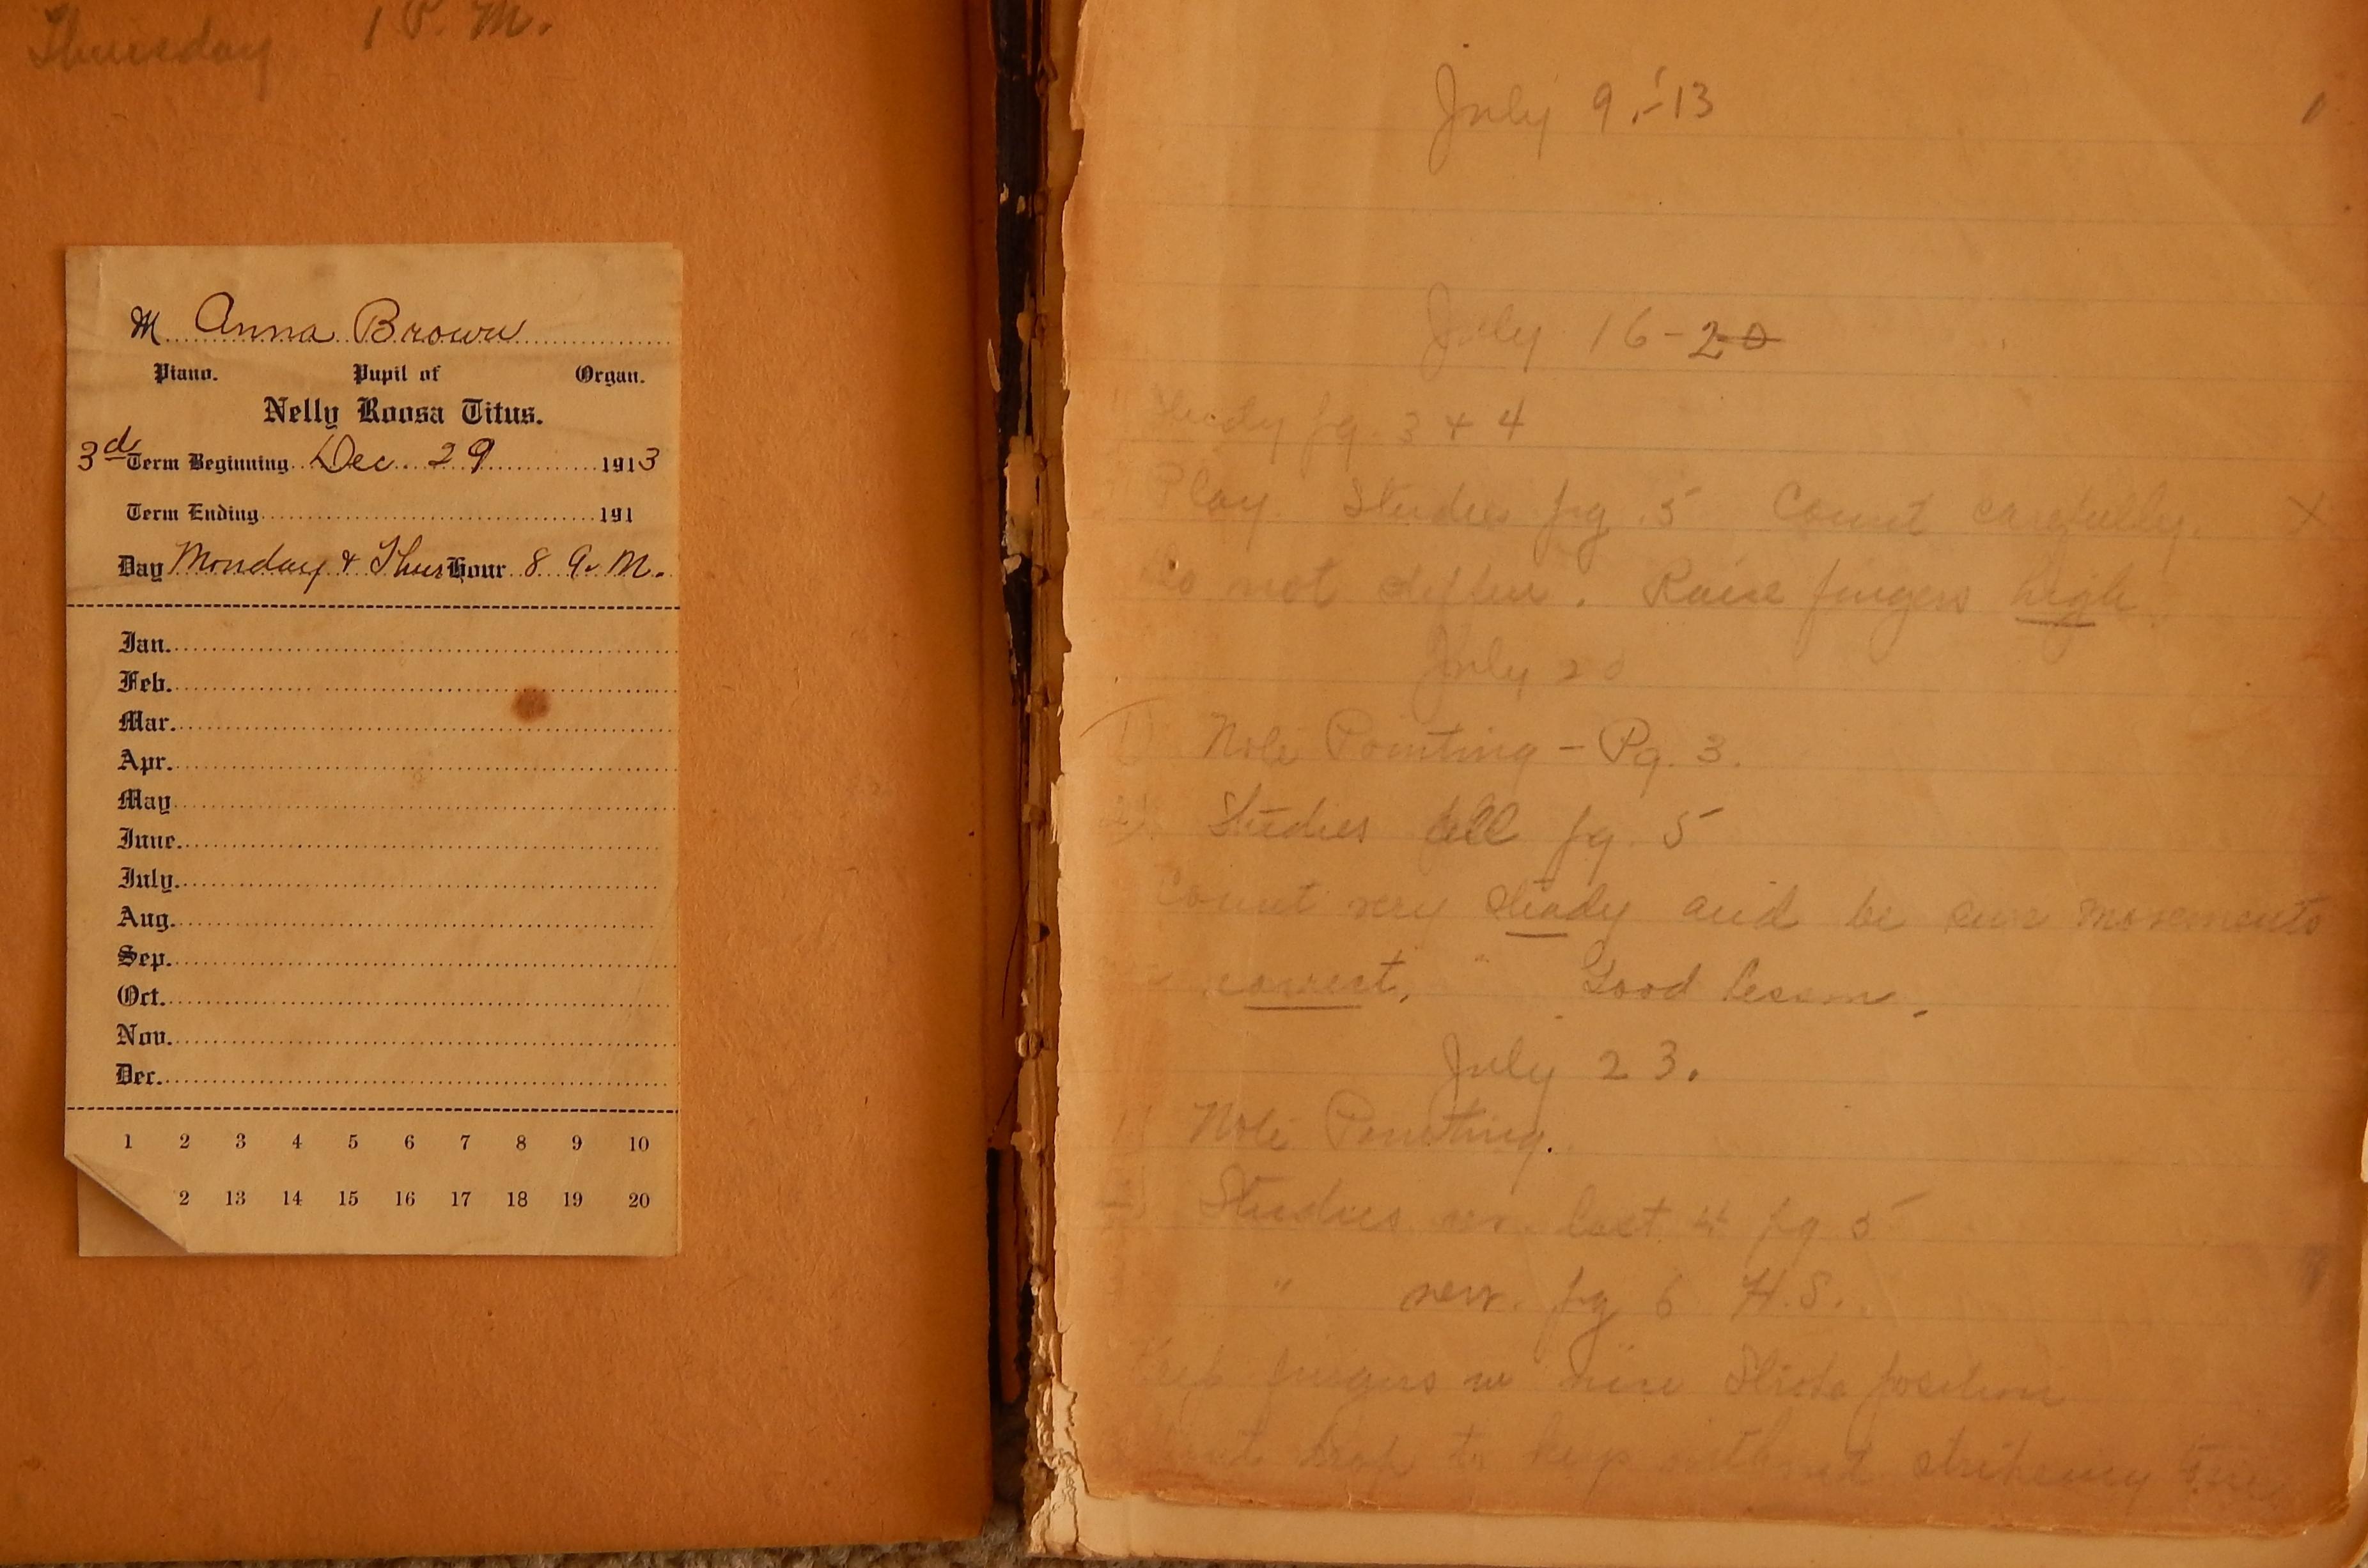 Thursday 1 P. M.
M Anna Brown
Piano. Pupil of Organ.
Nelly Roosa Titus.
3d Term Beginning Dec 29 1913
Term Ending 191
Day Monday & Thurs Hour 8 A. M.
Jan.
Feb.
Mar.
Apr.
May
June.
July.
Aug.
Sep.
Oct.
Nov.
Dec.
1 2 3 4 5 6 7 8 9 10
2 13 14 15 16 17 18 19 20
July 9, '13
July 16-20
Study pg. 3 & 4
Play Studies pg. 5 Count carefully. X
Do not stiffen. Raise fingers high
July 20
1) Note Pointing - Pg. 3.
2) Studies all pg. 5
Count very steady and be sure movements
correct. Good lesson.
July 23.
1) Note Pointing.
2) Studies rev. last 4 pg 5
" new. pg 6 H.S.
Keep fingers in nice position
drop to keys without striking